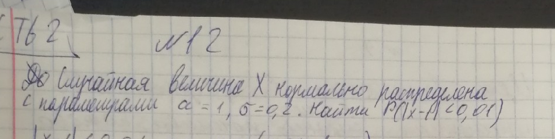 ТБ 2
№12
До Случайная величина X нормально распределена
с параметрами a = 1, σ=0,2. Найти P(|x-1|<0,01)